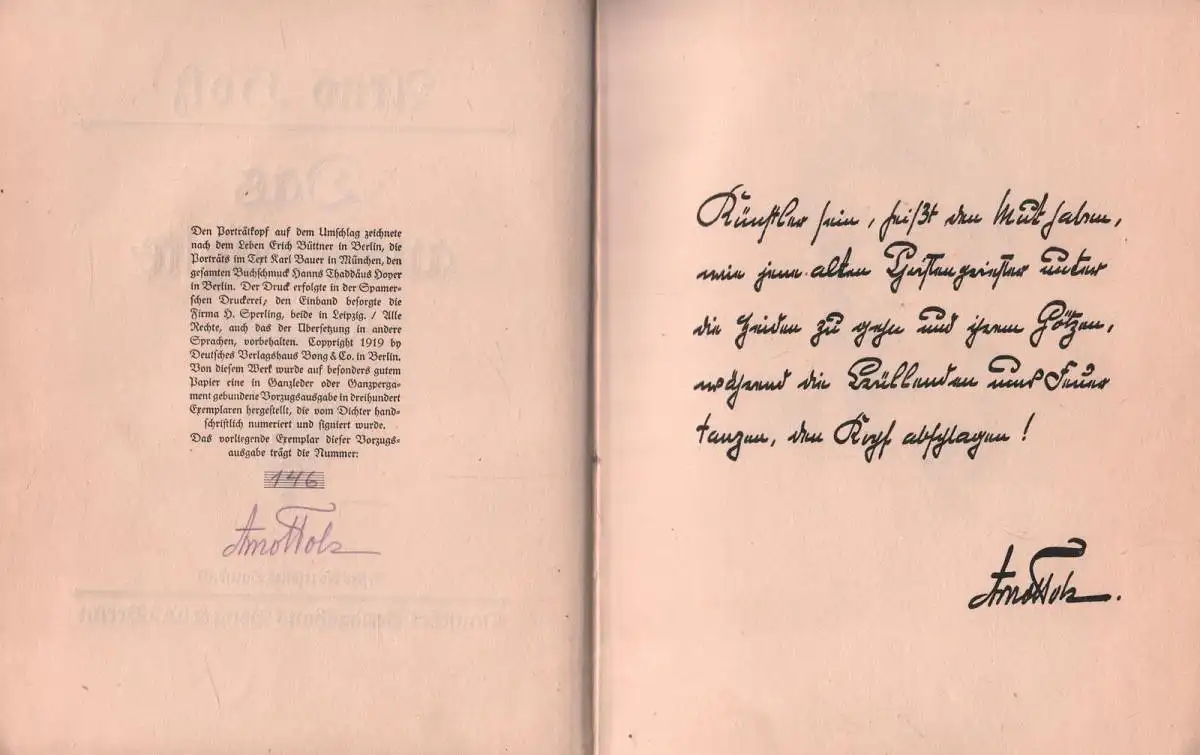 Den Porträtkopf auf dem Umschlag zeichnete
nach dem Leben Erich Büttner in Berlin, die
Porträts im Text Karl Bauer in München, den
gesamten Buchschmuck Hanns Thaddäus Hoyer
in Berlin. Der Druck erfolgte in der Spamer-
schen Druckerei, den Einband besorgte die
Firma H. Sperling, beide in Leipzig. / Alle
Rechte, auch das der Übersetzung in andere
Sprachen, vorbehalten. Copyright 1919 by
Deutsches Verlagshaus Bong & Co. in Berlin.
Von diesem Werk wurde auf besonders gutem
Papier eine in Ganzleder oder Ganzperga-
ment gebundene Vorzugsausgabe in dreihundert
Exemplaren hergestellt, die vom Dichter hand-
schriftlich numeriert und signiert wurde.
Das vorliegende Exemplar dieser Vorzugs-
ausgabe trägt die Nummer:
146
Arno Holz
Künstler sein, heißt den Mut haben,
wie jene alten Christenpriester unter
die Heiden zu gehn und ihrem Götzen,
während die Brüllenden ums Feuer
tanzen, den Kopf abschlagen!
Arno Holz.